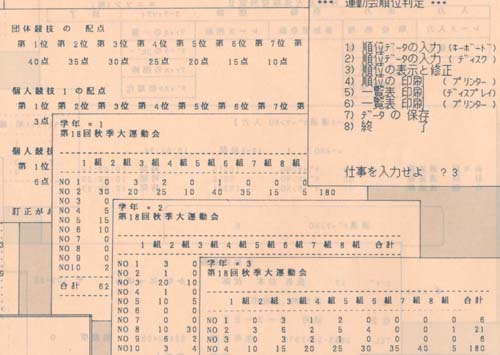 *** 運動会順位判定 ***
1) 順位データの入力 (キーボード)
2) 順位データの入力 (ディスク)
3) 順位の表示と修正
4) 順位の 印刷 (プリンター)
5) 一覧表 印刷 (ディスプレイ)
6) 一覧表 印刷 (プリンター)
7) データの 保存
8) 終 了
仕事を入力せよ ? 3
団体競技の 配点
第1位 第2位 第3位 第4位 第5位 第6位 第7位 第
40点 35点 30点 25点 20点 15点 10点
個人競技1の配点
第1位 第2位 第3位 第4位 第5位 第6位 第7位 第
3点
個人競技
第1位
6点
訂正があ
学年 = 1
第18回秋季大運動会
1組 2組 3組 4組 5組 6組 7組 8組
NO 1 0 3 2 0 1 0 0 0
NO 2 30 20 25 10 40 35 15 5 180
NO 3 0
NO 4 5
NO 5 15
NO 6 10
NO 7 0
NO 8 0
NO 9 0
NO10 2
合計 62
学年 = 2
第18回秋季大運動会
1組 2組 3組 4組 5組 6組 7組 8組 合計
NO 1 3 0
NO 2 1 0
NO 3 20 10
NO 4 3
NO 5 0
NO 6 0
NO 7 0
NO 8 0
NO 9 6 2
NO10 3 4
学年 = 3
第18回秋季大運動会
1組 2組 3組 4組 5組 6組 7組 8組 合計
NO 1 0 3 1 2 0 0 0 0 6
NO 2 3 6 2 5 4 0 0 1 21
NO 3 0 2 3 0 1 0 0 0 6
NO 4 10 15 20 25 30 35 40 5 180